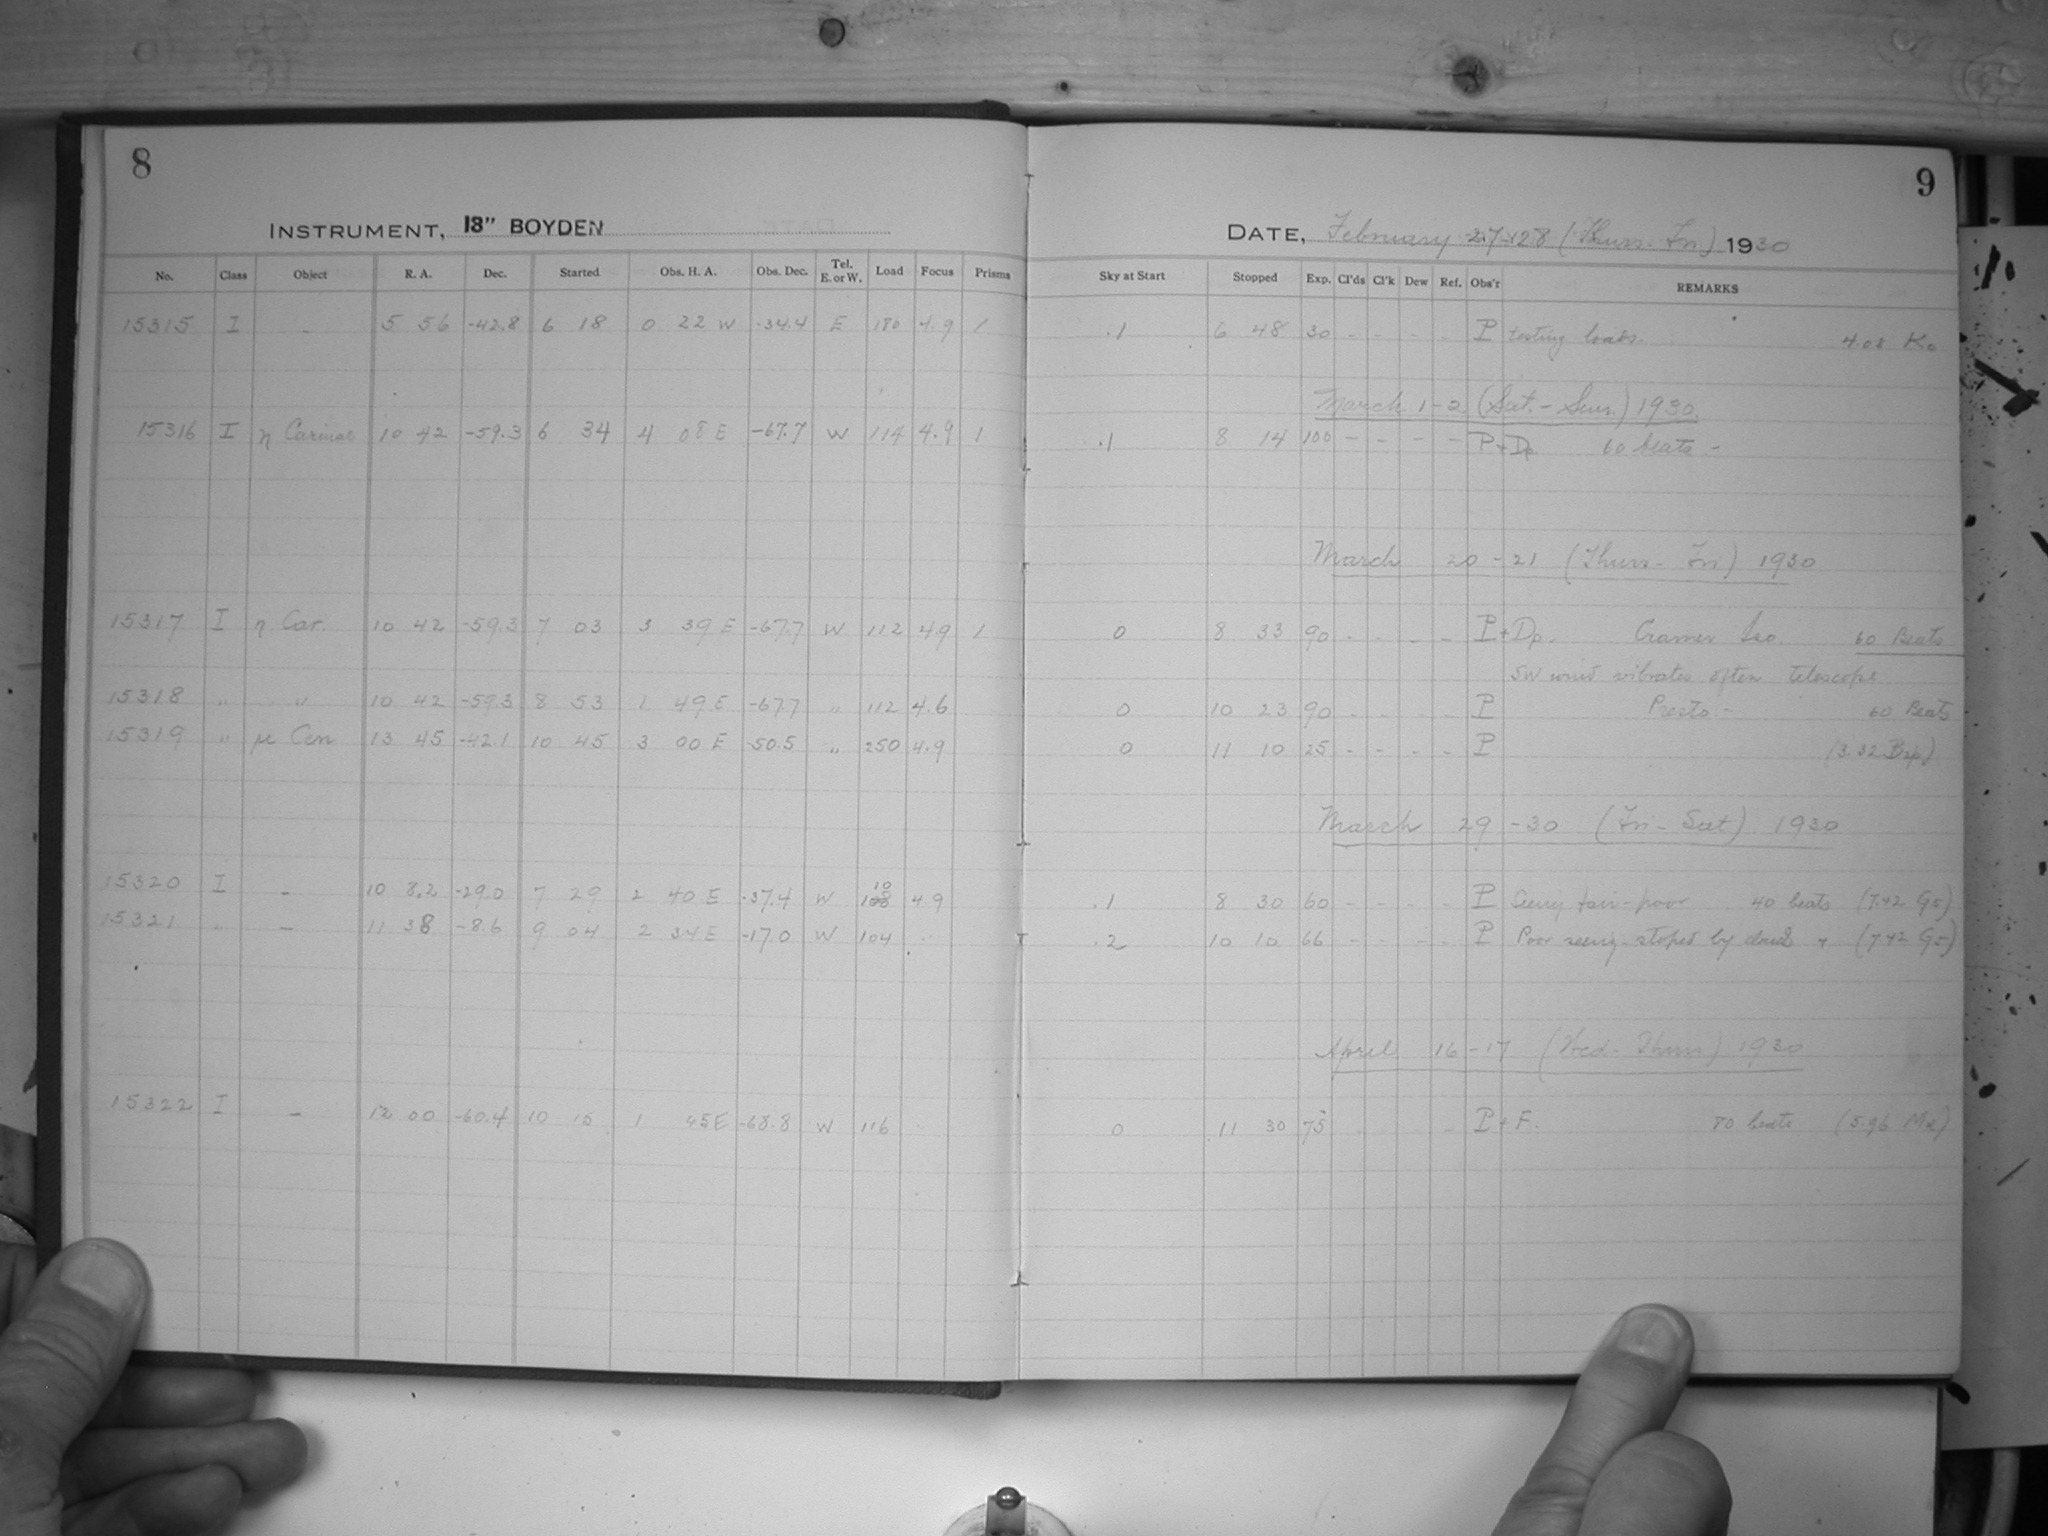 8
INSTRUMENT, 13" BOYDEN
No. Class Object R. A. Dec. Started Obs. H. A. Obs. Dec. Tel. E. or W. Load Focus Prisms
15315 I - 5 56 -42.8 6 18 0 22 W -34.4 E 180 4.9 1
15316 I η Carinae 10 42 -59.3 6 34 4 08 E -67.7 W 114 4.9 1
15317 I η Car. 10 42 -59.3 7 03 3 39 E -67.7 W 112 4.9 1
15318 " " 10 42 -59.3 8 53 1 49 E -67.7 " 112 4.6
15319 " μ Cen 13 45 -42.1 10 45 3 00 E -50.5 " 250 4.9
15320 I - 10 8.2 -29.0 7 29 2 40 E -37.4 W 10 4.9
15321 " - 11 38 -8.6 9 04 2 34 E -17.0 W 104
15322 I - 12 00 -60.4 10 15 1 45 E -68.8 W 116
9
DATE, February 27-28 (Thurs-Fri) 1930
Sky at Start Stopped Exp. Cl'ds Cl'k Dew Ref. Obs'r REMARKS
.1 6 48 30 - - - - P testing loads. 4.08 K0
March 1-2 (Sat.-Sun.) 1930
.1 8 14 100 - - - - P+Dp 60 beats -
March 20-21 (Thurs-Fri) 1930
0 8 33 90 - - - - P+Dp. Cramer Iso. 60 Beats
SW wind vibrates often telescope
0 10 23 90 - - - - P Presto - 60 Beats
0 11 10 25 - - - - P (3.32 B2p)
March 29-30 (Fri-Sat) 1930
.1 8 30 60 - - - - P Seeing fair-poor 40 beats (7.42 G5)
.2 10 10 66 - - - - P Poor seeing - stoped by cloud (7.42 G5)
April 16-17 (Wed-Thur) 1930
0 11 30 75 - - - - P+F. 80 beats (5.96 Ma)